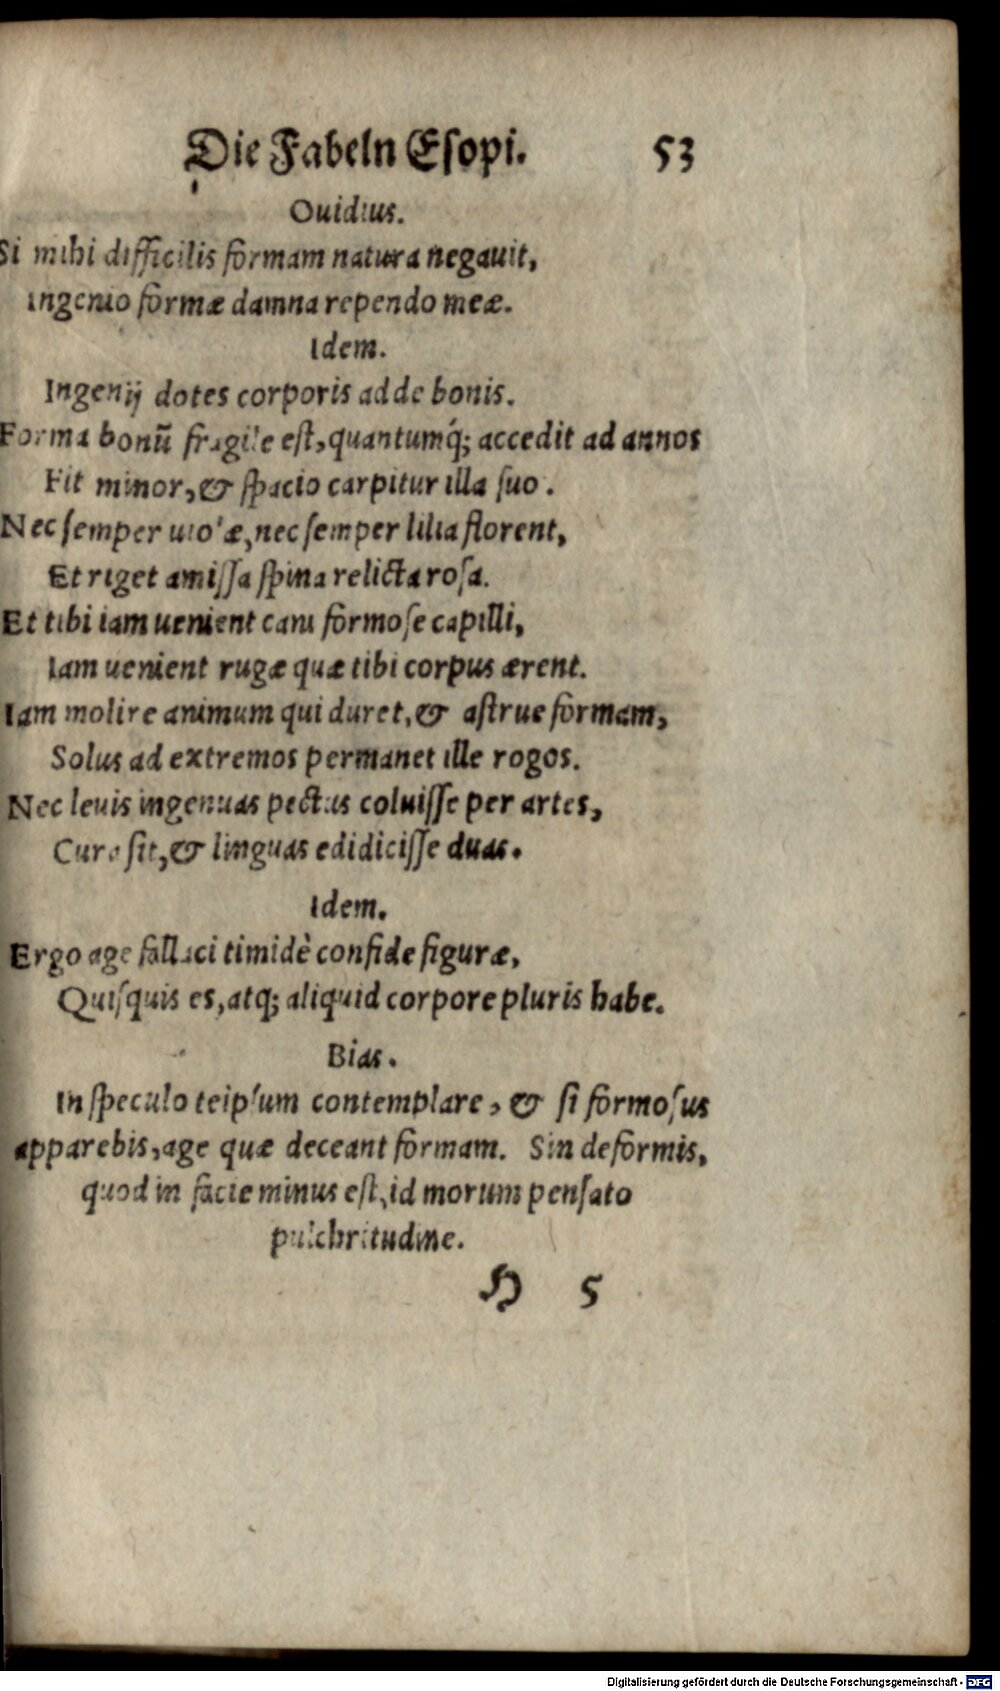 Die Fabeln Esopi. 53
Ouidius.
Si mihi difficilis formam natura negauit,
ingenio formæ damna rependo meæ.
Idem.
Ingenij dotes corporis adde bonis.
Forma bonũ fragile est, quantumq́; accedit ad annos
Fit minor, & spacio carpitur illa suo.
Nec semper uiolæ, nec semper lilia florent,
Et riget amissa spina relicta rosa.
Et tibi iam uenient cani formose capilli,
Iam uenient rugæ quæ tibi corpus ærent.
Iam molire animum qui duret, & astrue formam,
Solus ad extremos permanet ille rogos.
Nec leuis ingenuas pectus coluisse per artes,
Cura sit, & linguas edidicisse duas.
Idem.
Ergo age fallaci timidè confide figuræ,
Quisquis es, atq; aliquid corpore pluris habe.
Bias.
In speculo teipsum contemplare, & si formosus
apparebis, age quæ deceant formam. Sin deformis,
quod in facie minus est, id morum pensato
pulchritudine.
H 5
Digitalisierung gefördert durch die Deutsche Forschungsgemeinschaft - DFG